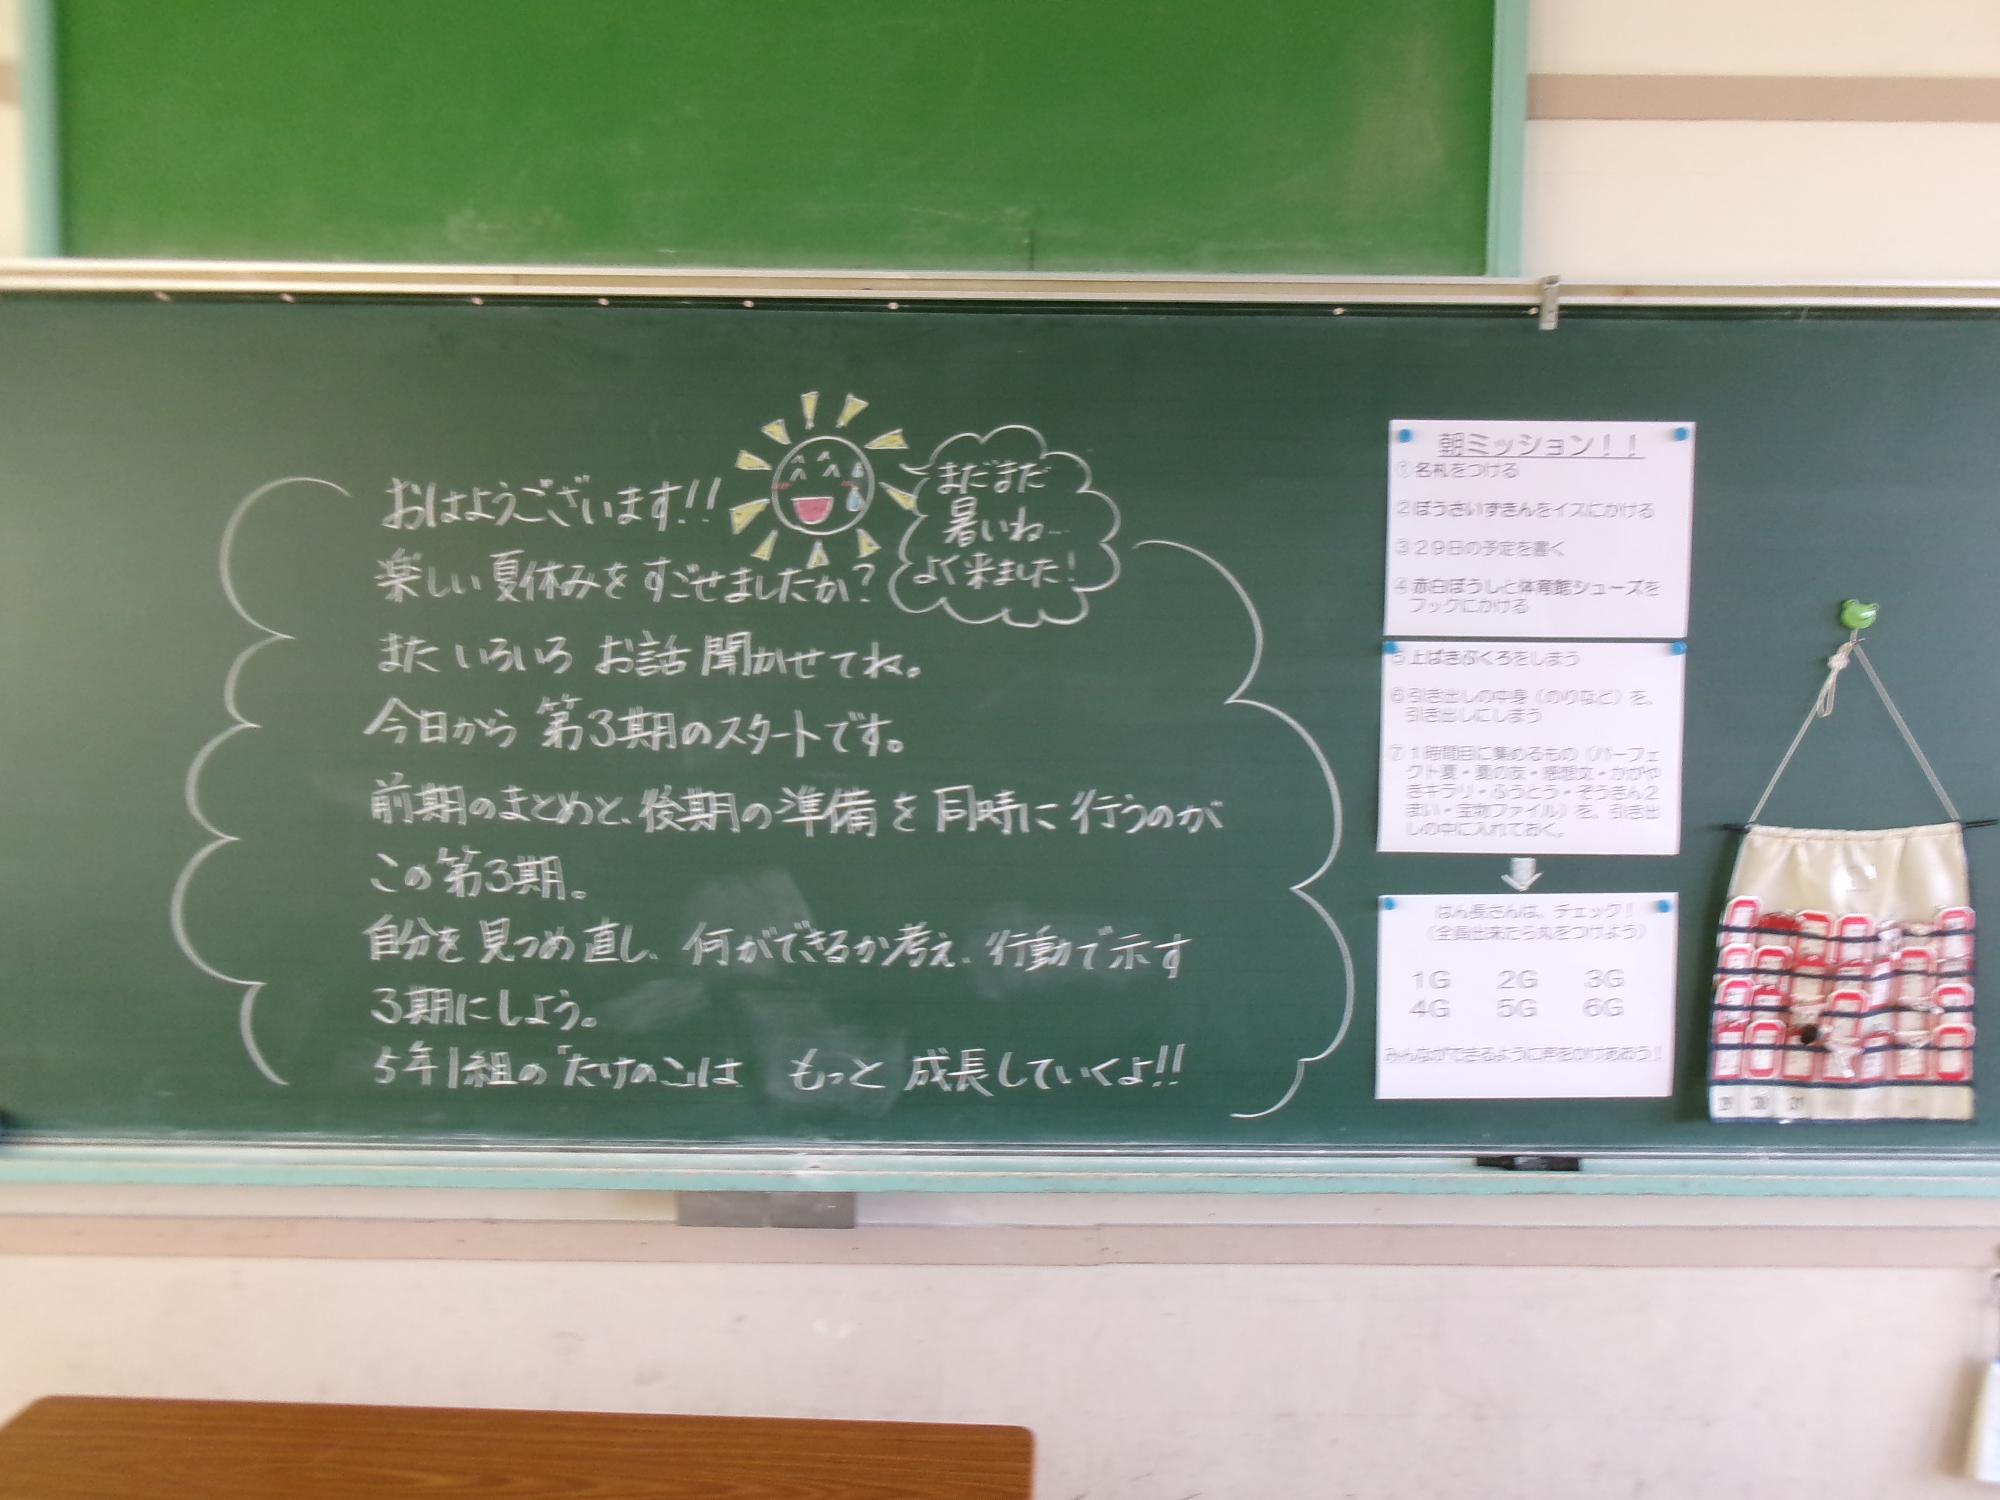 おはようございます!!
楽しい夏休みをすごせましたか?
また いろいろ お話 聞かせてね。
今日から 第3期のスタートです。
前期のまとめと、後期の準備を同時に行うのが
この第3期。
自分を見つめ直し、何ができるか考え、行動で示す
3期にしよう。
5年1組の「たけのこ」は もっと 成長していくよ!!
まだまだ
暑いね…
よく来ました!
朝ミッション!!
①名札をつける
②ぼうさいずきんをイスにかける
③29日の予定を書く
④赤白ぼうしと体育館シューズを
フックにかける
5上ばきぶくろをしまう
⑥引き出しの中身(のりなど)を、
引き出しにしまう
⑦1時間目に集めるもの(パーフェ
クト夏・夏の友・感想文・かがや
きキラリ・ふうとう・ぞうきん2
まい・宝物ファイル)を、引き出
しの中に入れておく。
はん長さんは、チェック!
(全員出来たら丸をつけよう)
1G 2G 3G
4G 5G 6G
みんなができるように声をかけあおう!
29 30 31